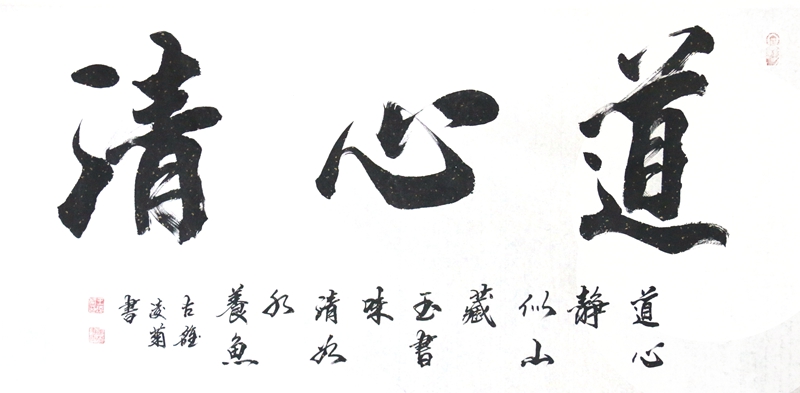 道心清
道心
静
似山
藏
玉書
味
清如
水
養魚
古雒
凌菊
書